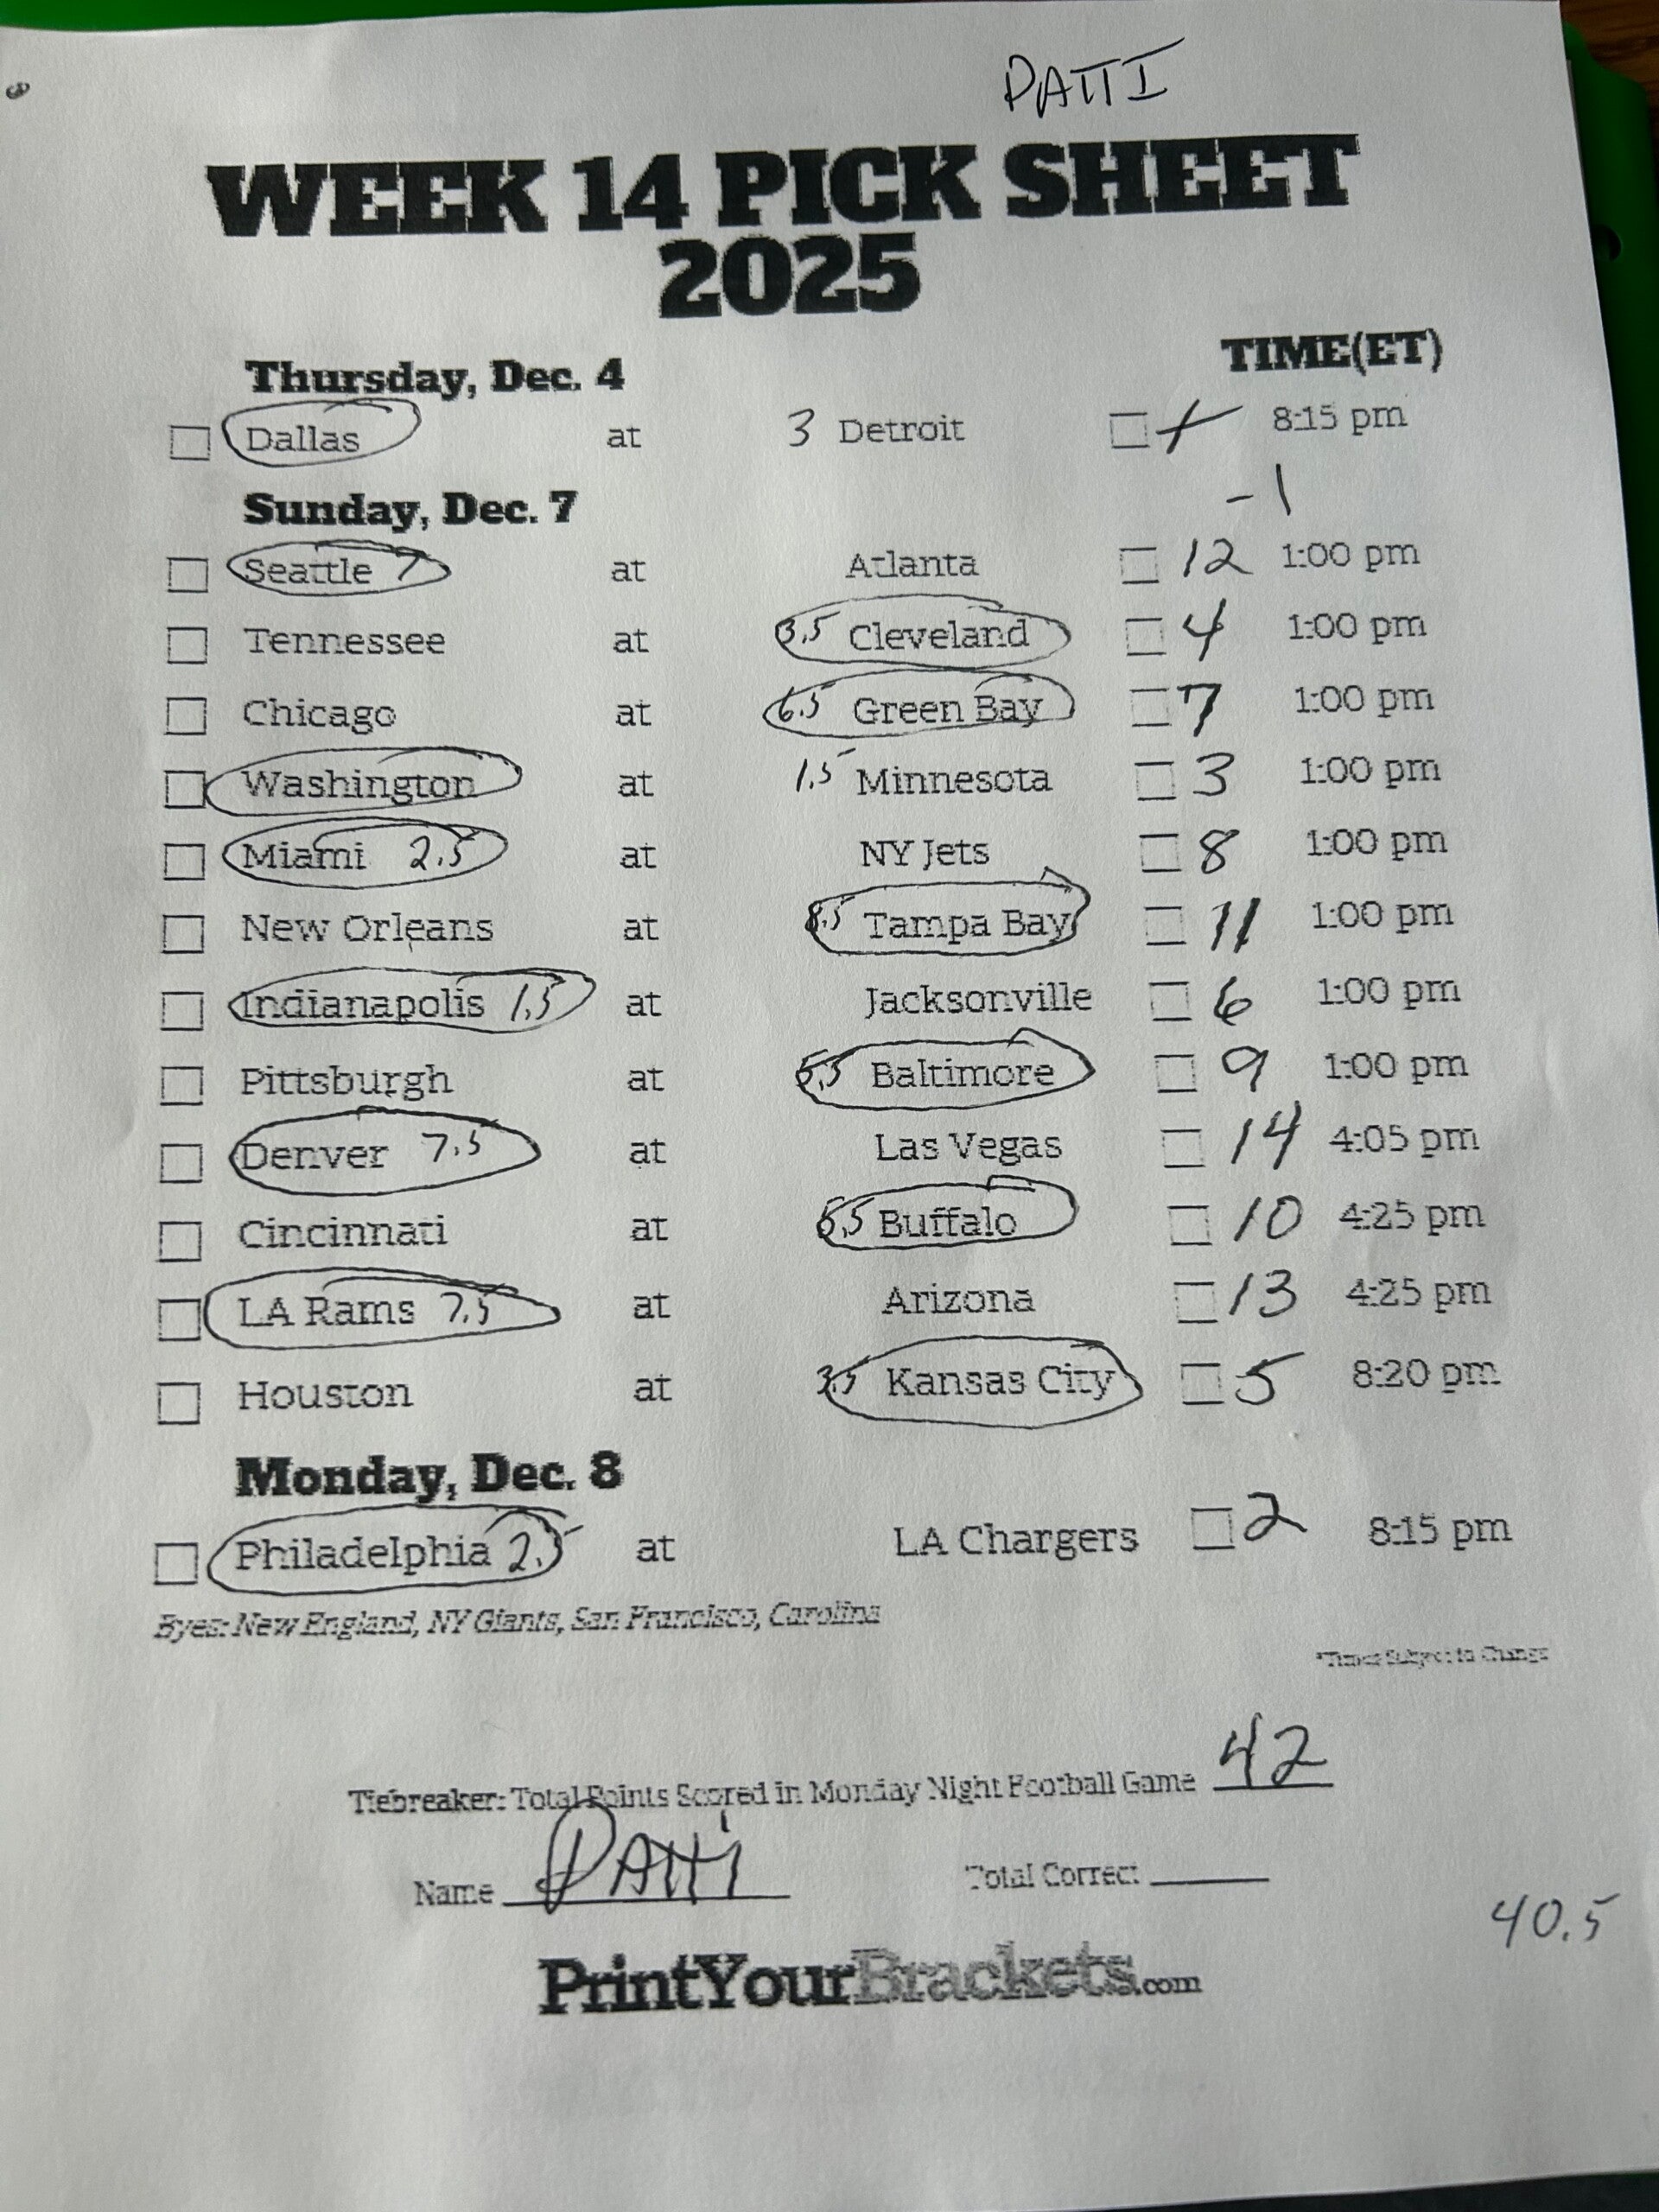 PATTI
WEEK 14 PICK SHEET
2025
TIME(ET)
Thursday, Dec. 4
Dallas at 3 Detroit 1 8:15 pm
-1
Sunday, Dec. 7
Seattle 7 at Atlanta 12 1:00 pm
Tennessee at 3.5 Cleveland 4 1:00 pm
Chicago at 6.5 Green Bay 7 1:00 pm
Washington at 1.5 Minnesota 3 1:00 pm
Miami 2.5 at NY Jets 8 1:00 pm
New Orleans at 8.5 Tampa Bay 11 1:00 pm
Indianapolis 1.5 at Jacksonville 6 1:00 pm
Pittsburgh at 5.5 Baltimore 9 1:00 pm
Denver 7.5 at Las Vegas 14 4:05 pm
Cincinnati at 5.5 Buffalo 10 4:25 pm
LA Rams 7.5 at Arizona 13 4:25 pm
Houston at 3.5 Kansas City 5 8:20 pm
Monday, Dec. 8
Philadelphia 2.5 at LA Chargers 2 8:15 pm
Byes: New England, NY Giants, San Francisco, Carolina
*Times Subject to Change
Tiebreaker: Total Points Scored in Monday Night Football Game 42
Name PATTi Total Correct
40.5
PrintYourBrackets.com